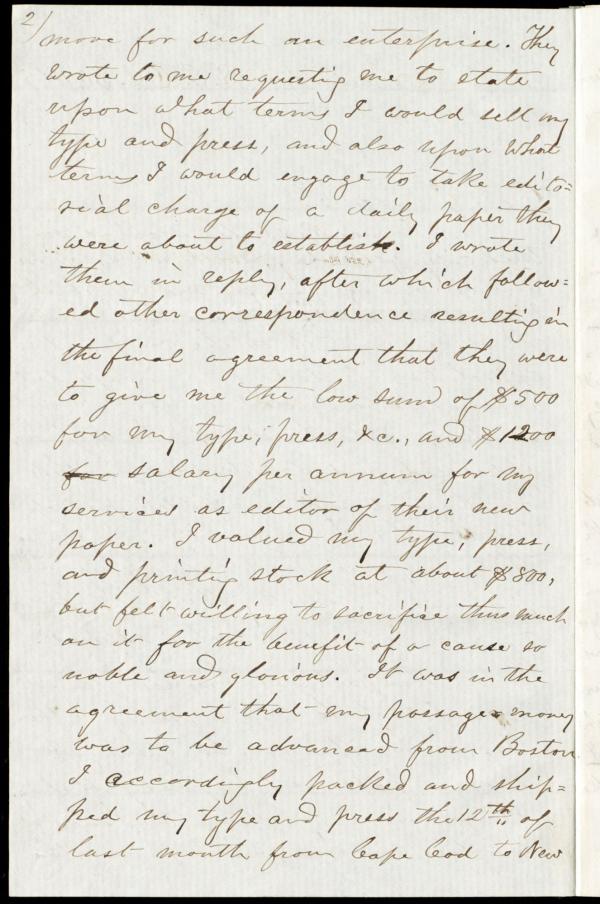 2)
move for such an enterprise. They
wrote to me requesting me to state
upon what terms I would sell my
type and press, and also upon what
terms I would engage to take edito=
rial charge of a daily paper they
were about to establish. I wrote
them in reply, after which follow=
ed other correspondence resulting in
the final agreement that they were
to give me the low sum of $500
for my type, press, &c., and $1200
for salary per annum for my
services as editor of their new
paper. I valued my type, press,
and printing stock at about $800,
but felt willing to sacrifice thus much
on it for the benefit of a cause so
noble and glorious. It was in the
agreement that my passage money
was to be advanced from Boston
I accordingly packed and ship=
ped my type and press the 12th of
last month from Cape Cod to New